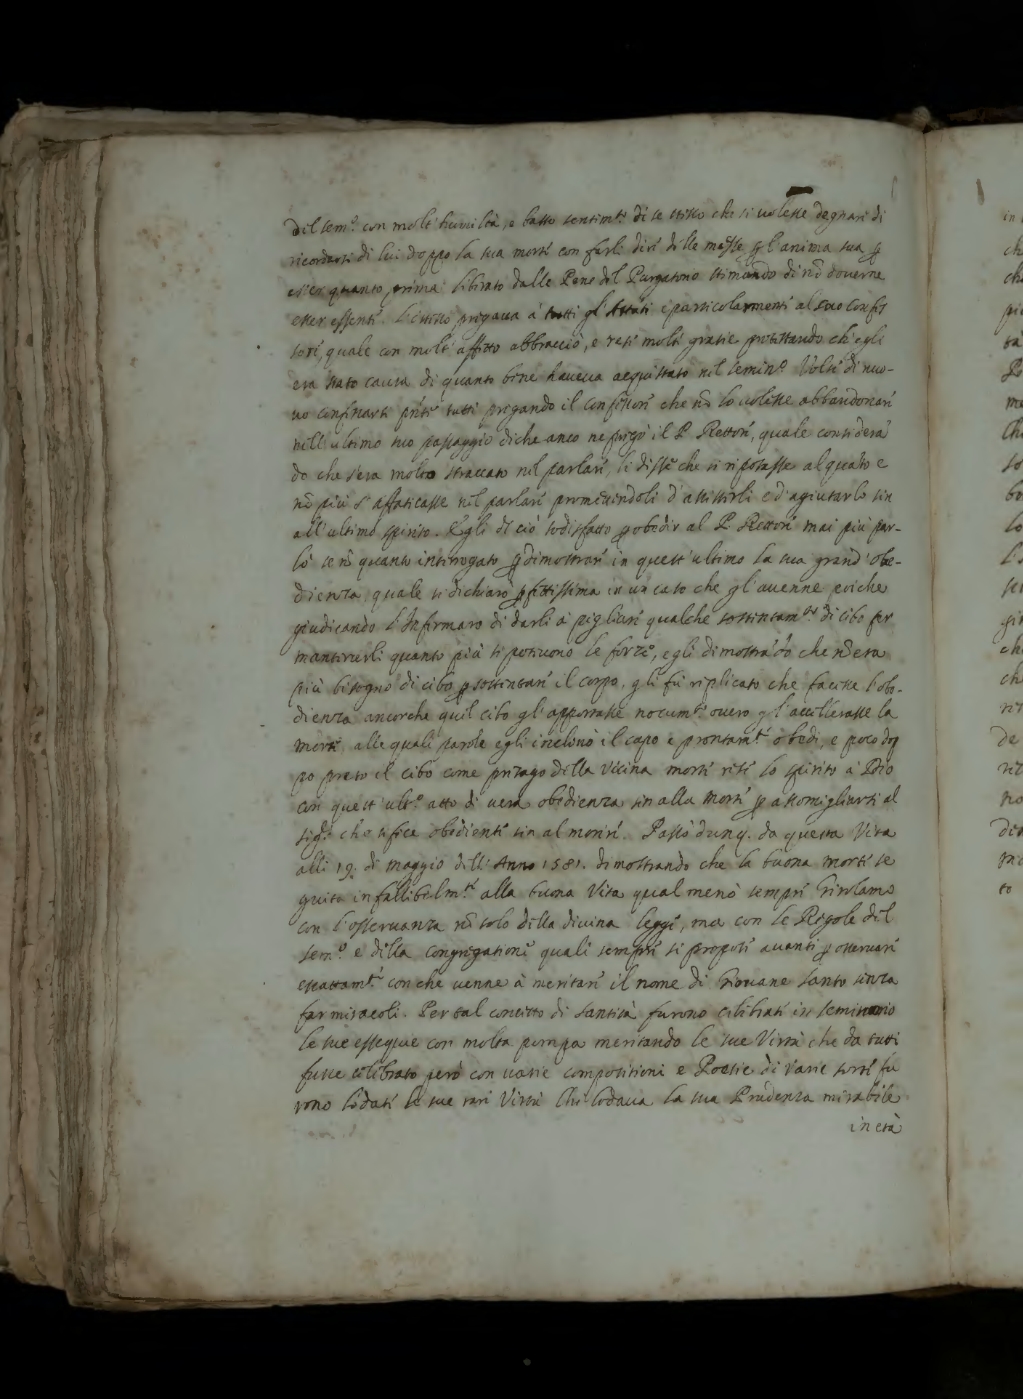 del sem.º con molt'humiltà, e basso sentim.º di se stesso che si volesse degnari di
ricordarsi di lui doppo la sua morte con farli dire delle messe ꝑ l'anima sua ꝑ
esser quanto prima liberato dalle Pene del Purgatorio stimando di nõ doverne
esser essente. L'istesso pregava à tutti gl'Astati e particolarmente al suo confes
sore, quale con molt'affetto abbracciò, e rese molte gratie protestando ch'egli
era stato causa di quanto bene haveva acquistato nel semin.º Volse di nuo-
vo confessarsi tutti pregando il confessore che nõ lo volesse abbandonare
nell'ultimo suo passaggio di che anco ne pregò il P. Rettore, quale considerã
do che s'era molto straccato nel parlare, li disse che si riposasse alquãto e
nõ più s'affaticasse nel parlare promettendoli d'assisterli e d'agiutarlo sin
all'ultimo spirito. Egli di ciò sodisfatto ꝑ obedir al P. Rettore mai più par-
lò se nõ quanto interrogato ꝑ dimostrare in quest'ultimo la sua grand'obe-
dienza, quale si dichiarò ꝑfettissima in un caso che gl'avenne, poiche
giudicando l'Infermaro di darli à pigliare qualche sostentam.to di cibo per
mantenerli quanto più si potevono le forze, egli dimostrãdo che nõ era
più bisogno di cibo ꝑ sostentare il corpo, gli fù replicato che facesse l'obe-
dienza ancorche quel cibo gl'apportasse nocum.to overo gl'accellerasse la
morte, alle quali parole egli inclinò il capo e prontam.te obedì, e poco dop
po preso il cibo come presago della vicina morte rese lo spirito à Dio
con quest'ult.º atto di vera obedienza sin alla morte ꝑ assomigliarsi al
sig.re che si fece obediente sin al morire. Passò dunq. da questa Vita
alli 19. di maggio dell'Anno 1581. dimostrando che la buona morte se
guita infallibelm.te alla buona Vita qual menò sempre Girolamo
con l'osservanza nõ solo della divina legge, ma con le Regole del
sem.º e della congregatione quali sempre si propose avanti ꝑ osservare
esattam.te con che venne à meritare il nome di Giovane santo senza
far miracoli. Per tal concetto di santità furono celebrate in seminario
le sue essequie con molta pompa meritando le sue Virtù che da tutti
fusse celebrato però con varie compositioni e Poesie di varie sorte fu
rono lodate le sue rare Virtù Chi lodava la sua Prudenza mirabile
in età